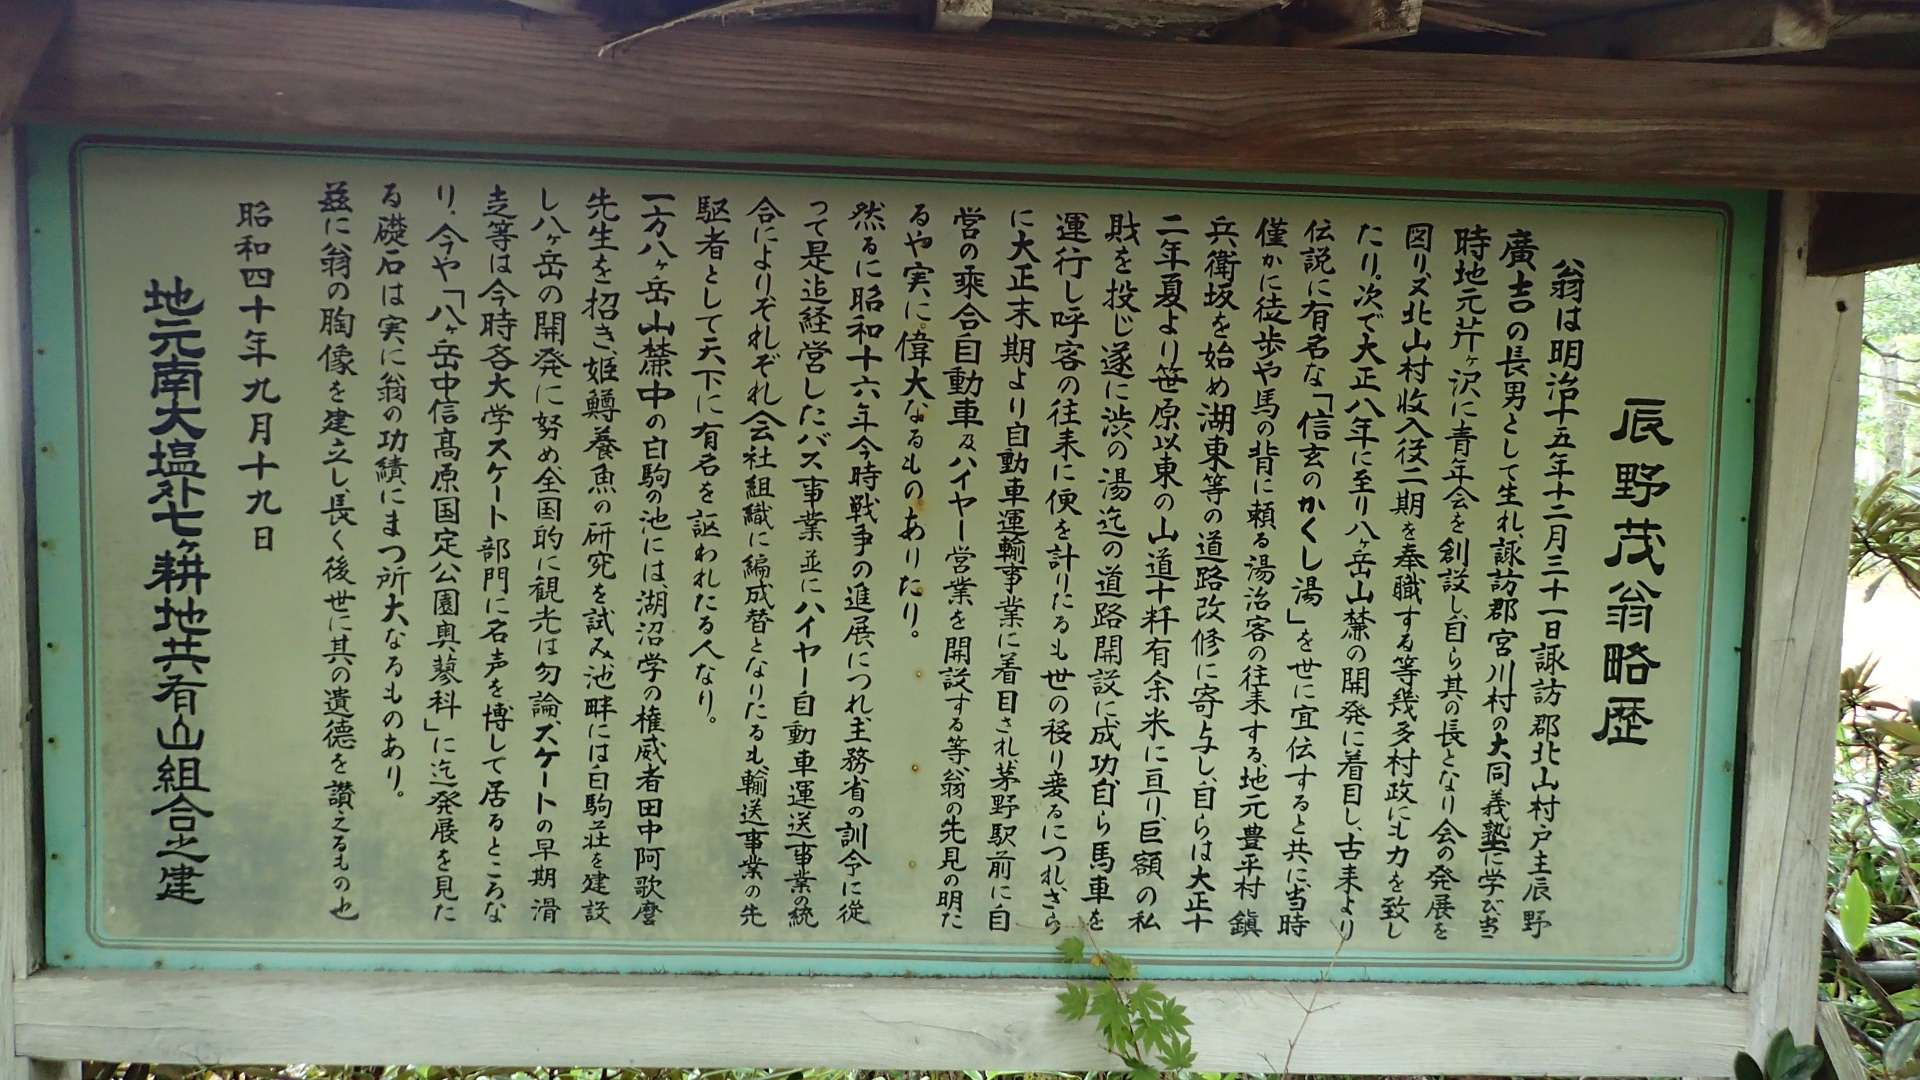 辰野茂翁略歴
翁は明治十五年十二月三十一日諏訪郡北山村戸主辰野
廣吉の長男として生れ、諏訪郡宮川村の大同義塾に学び当
時地元芹ヶ沢に青年会を創設し、自ら其の長となり会の発展を
図り又北山村收入役二期を奉職する等幾多村政にも力を致し
たり。次で大正八年に至り八ヶ岳山麓の開発に着目し、古来より
伝説に有名な「信玄のかくし湯」を世に宣伝すると共に、当時
僅かに徒歩や馬の背に頼る湯治客の往来する、地元豊平村鎭
兵衛坂を始め湖東等の道路改修に寄与し、自らは大正十
二年夏より笹原以東の山道十粁有余米に亘り、巨額の私
財を投じ遂に渋の湯迄の道路開設に成功、自ら馬車を
運行し呼客の往来に便を計りたるも世の移り変るにつれ、さら
に大正末期より自動車運輸事業に着目され茅野駅前に自
営の乘合自動車及ハイヤー営業を開設する等翁の先見の明た
るや実に偉大なるものありたり。
然るに昭和十六年今時戦争の進展につれ主務省の訓令に従
って是迄経営したバス事業並にハイヤー自動車運送事業の統
合によりぞれぞれ会社組織に編成替となりたるも、輸送事業の先
駆者として天下に有名を謳われたる人なり。
一方八ヶ岳山麓中の白駒の池には、湖沼学の権威者田中阿歌麿
先生を招き、姫鱒養魚の研究を試み池畔には白駒荘を建設
し八ヶ岳の開発に努め、全国的に観光は勿論、スケートの早期滑
走等は今時各大学スケート部門に名声を博して居るところな
り、今や「八ヶ岳中信高原国定公園奥蓼科」に迄発展を見た
る礎石は実に翁の功績にまつ所大なるものあり。
茲に翁の胸像を建立し、長く後世に其の遺徳を讃えるもの也
昭和四十年九月十九日
地元南大塩外七ヶ耕地共有山組合之建